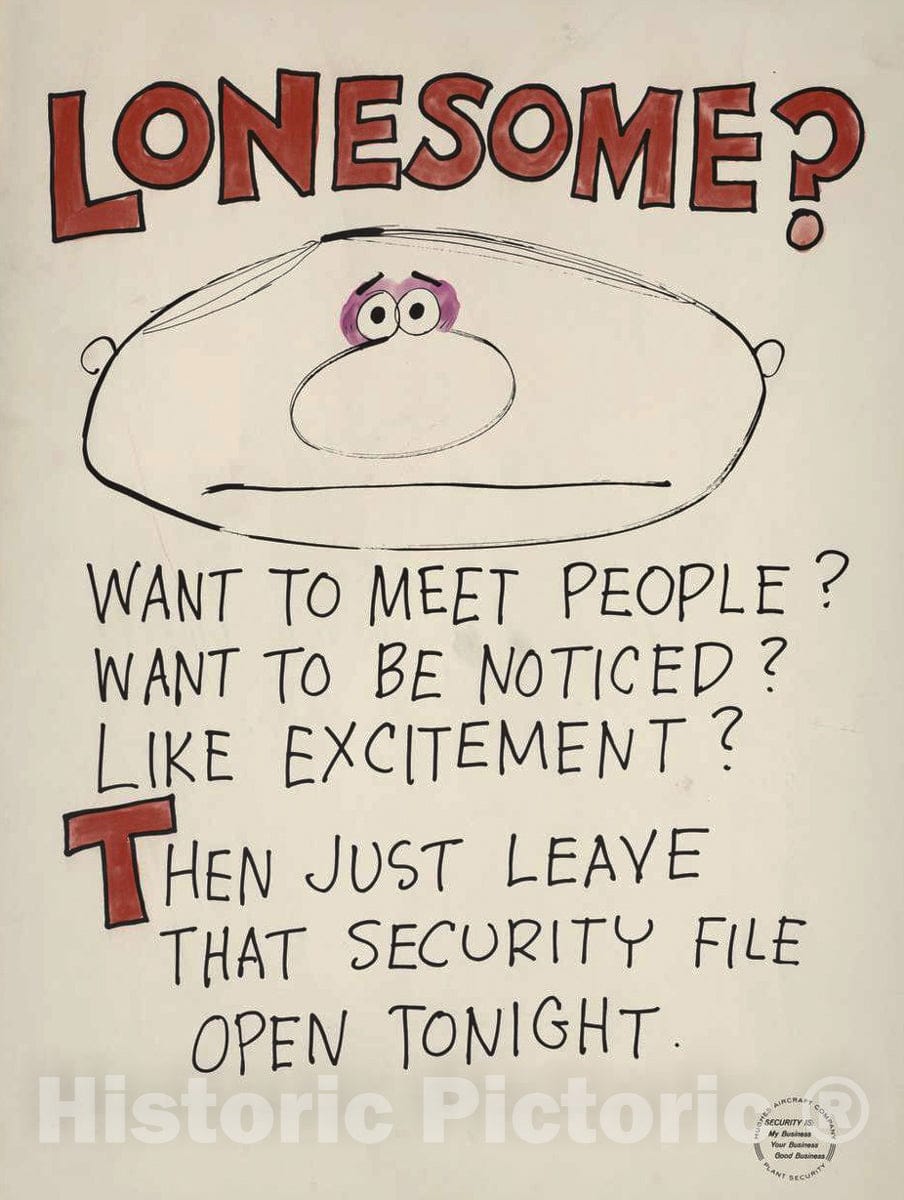 LONESOME?
WANT TO MEET PEOPLE?
WANT TO BE NOTICED?
LIKE EXCITEMENT?
THEN JUST LEAVE
THAT SECURITY FILE
OPEN TONIGHT.
Historic Pictoric®
HUGHES AIRCRAFT COMPANY
SECURITY IS:
My Business
Your Business
Good Business
PLANT SECURITY